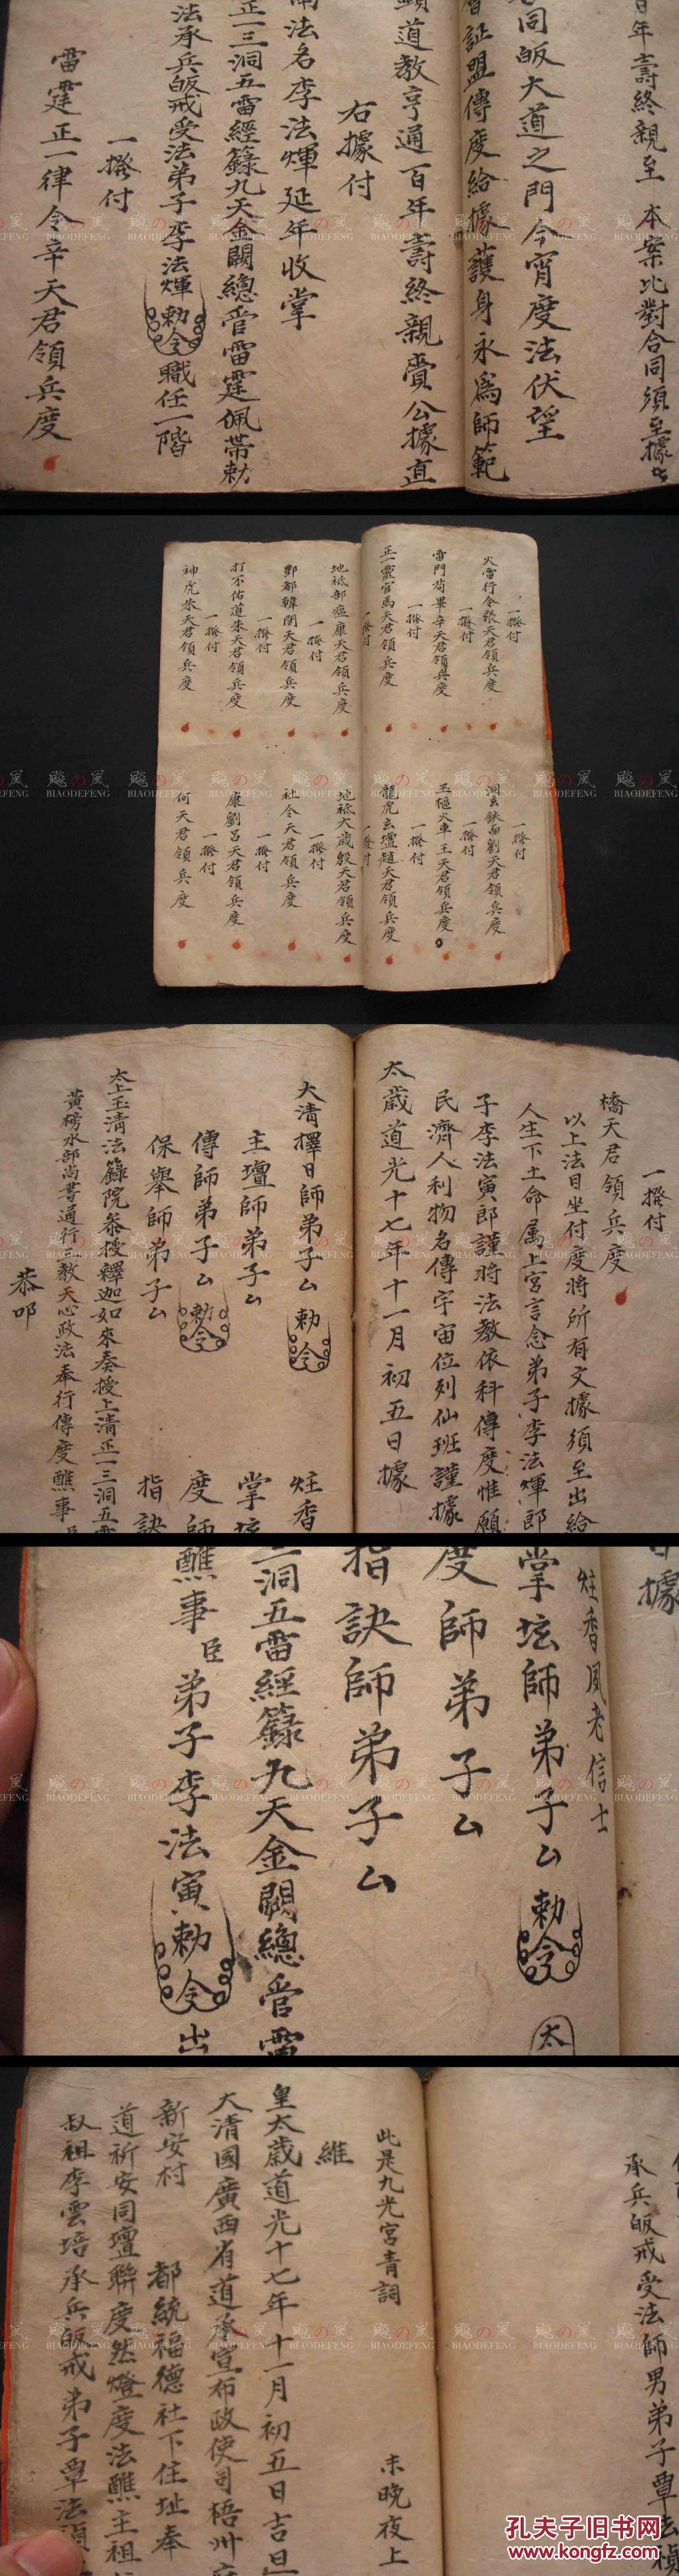 百年壽終親至 本案比對合同須至據
同皈大道之門今宵度法伏望
証盟傳度給據護身永為師範
道教亨通百年壽終親賫公據直
右據付
法名李法煇延年收掌
正一三洞五雷經籙九天金闕總管雷霆佩帶勅
法承兵皈戒受法弟子李法煇勅令職任一階
一撥付
雷霆正一律令辛天君領兵度
一撥付
火雷行令張天君領兵度
一撥付
雷門苟畢辛天君領兵度
一撥付
正一靈官馬天君領兵度
一撥付
地祇部瘟康天君領兵度
一撥付
酆都韓關天君領兵度
一撥付
打不佑道朱天君領兵度
一撥付
神虎朱天君領兵度
一撥付
洞玄鉄面劉天君領兵度
一撥付
玉樞火車王天君領兵度
一撥付
龍虎玄壇趙天君領兵度
一撥付
地祇大歲殷天君領兵度
一撥付
神令天君領兵度
一撥付
康劉呂天君領兵度
一撥付
何天君領兵度
一撥付
橋天君領兵度
以上法目坐付度將所有文據須至出給
人生下土命属上宮言念弟子李法煇郎
子李法寅郎謹將法教依科傳度惟願
民濟人利物名傳宇宙位列仙班謹據
太歲道光十七年十一月初五日據
大清擇日師弟子厶勅令
主壇師弟子厶
傳師弟子厶勅令
保舉師弟子厶
太上玉清法籙院叅授釋迦如來奏授上清正一三洞五雷
黃榜水部尚書通行敎天心政法奉行傳度醮事臣
恭叩
炷香
掌坛
度師
指訣
日據
炷香風老信士
掌坛師弟子厶勅令 太
度師弟子厶
指訣師弟子厶
三洞五雷經籙九天金闕總管雷
醮事臣弟子李法寅勅令出
承兵皈戒受法師男弟子覃法禎
此是九光宮青詞 未晚夜上
維
皇太歲道光十七年十一月初五日吉旦
大清國廣西省道承宣布政使司梧州府
新安村 都統福德社下住址奉
道祈安同壇聯度然燈度法醮主祖
叔祖李雲培承兵皈戒弟子覃法禎
飈の風
BIAODEFENG
孔夫子旧书网
www.kongfz.com